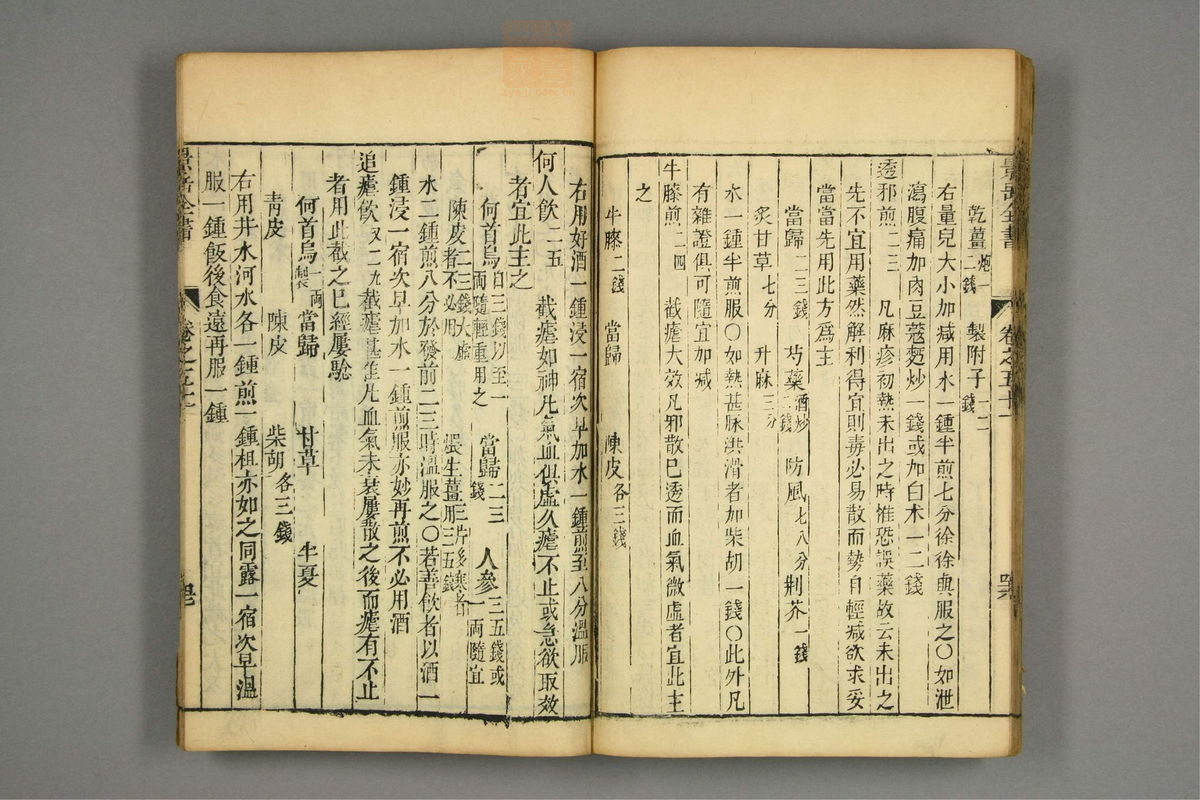 景岳全書
卷之五十一
乾薑炮一二錢 製附子一二錢
右量兒大小加減用水一鍾半煎七分徐徐與服之〇如泄
瀉腹痛加肉豆蔻麫炒一錢或加白术一二錢
透邪煎二三 凡麻疹初熱未出之時惟恐誤藥故云未出之
先不宜用藥然解利得宜則毒必易散而勢自輕減欲求妥
當當先用此方爲主
當歸二三錢 芍藥酒炒一二錢 防風七八分 荆芥一錢
炙甘草七分 升麻三分
水一鍾半煎服〇如熱甚脉洪滑者加柴胡一錢〇此外凡
有雜證俱可隨宜加減
牛膝煎二四 截瘧大效凡邪散已透而血氣微虛者宜此主
之
牛膝二錢 當歸 陳皮各三錢
右用好酒一鍾浸一宿次早加水一鍾煎至八分溫服
何人飲二五 截瘧如神凡氣血俱虛久瘧不止或急欲取效
者宜此主之
何首烏自三錢以至一兩隨輕重用之 當歸二三錢 人參三五錢或一兩隨宜
陳皮二三錢大虛者不必用 煨生薑三片多寒者用三五錢
水二鍾煎八分於發前二三時溫服之〇若善飲者以酒一
鍾浸一宿次早加水一鍾煎服亦妙再煎不必用酒
追瘧飲又二九 截瘧甚佳凡血氣未衰屢散之後而瘧有不止
者用此截之已經屢驗
何首烏一兩製 當歸 甘草 半夏
青皮 陳皮 柴胡各三錢
右用井水河水各一鍾煎一鍾柤亦如之同露一宿次早溫
服一鍾飯後食遠再服一鍾
景岳全書
卷之五十一